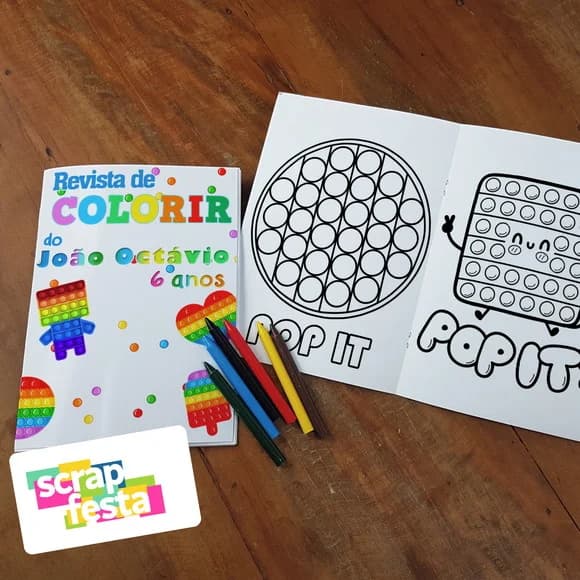 Revista de
COLORIR
do
João Octávio
6 anos
POP IT
POP IT
scrap
festa